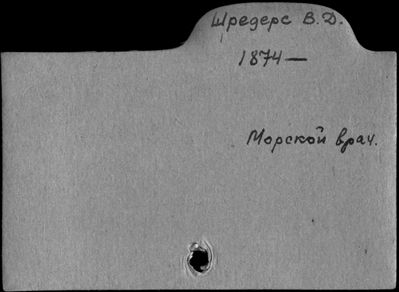 Шредерс В.Д.
1874—
Морской врач.